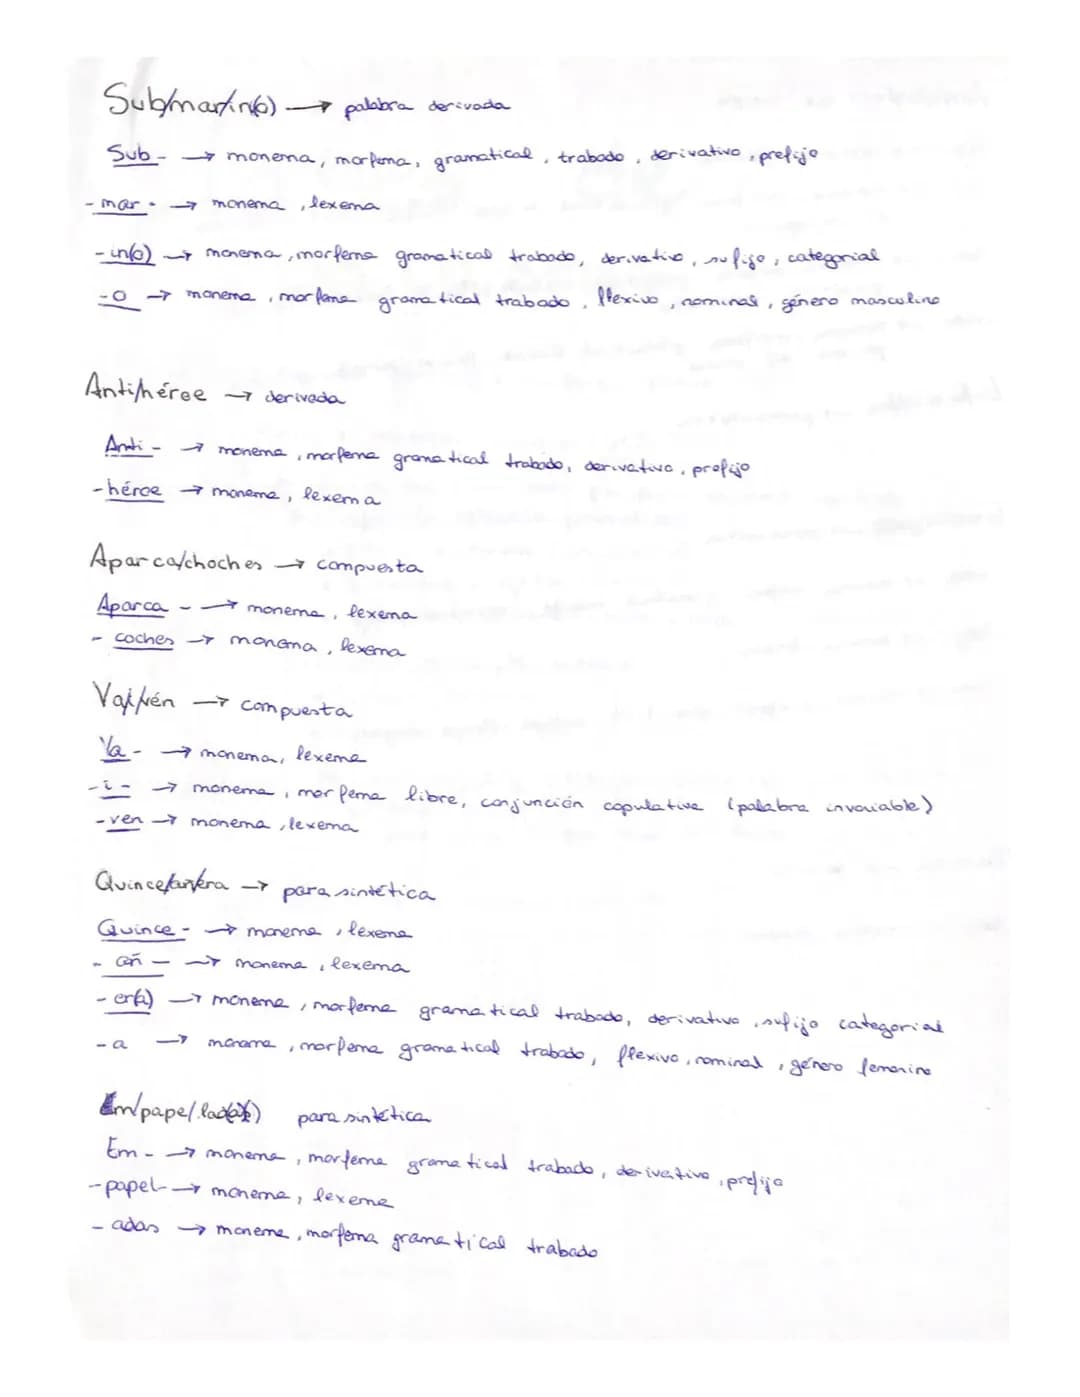 Sub/mar/in(o) → palabra derivada
Sub- → monema, morfema, gramatical, trabado, derivativo, prefijo
- mar - → monema, lexema
- in(o) → monema, morfema gramatical trabado, derivativo, sufijo, categorial
- o → monema, morfema gramatical trabado, flexivo, nominal, género masculino
Anti/héroe → derivada
Anti - → monema, morfema gramatical trabado, derivativo, prefijo
- héroe → monema, lexema
Aparca/choches → compuesta
Aparca - → monema, lexema
- coches → monema, lexema
Va/i/vén → compuesta
Va - → monema, lexema
- i - → monema, morfema libre, conjunción copulativa (palabra invariable)
- ven → monema, lexema
Quince/añ/era → parasintética
Quince - → monema, lexema
- añ - → monema, lexema
- er(a) → monema, morfema gramatical trabado, derivativo, sufijo categorial
- a → monema, morfema gramatical trabado, flexivo, nominal, género femenino
Em/pape/lada(s) parasintética
Em - → monema, morfema gramatical trabado, derivativo, prefijo
- papel - → monema, lexema
- adas → monema, morfema gramatical trabado